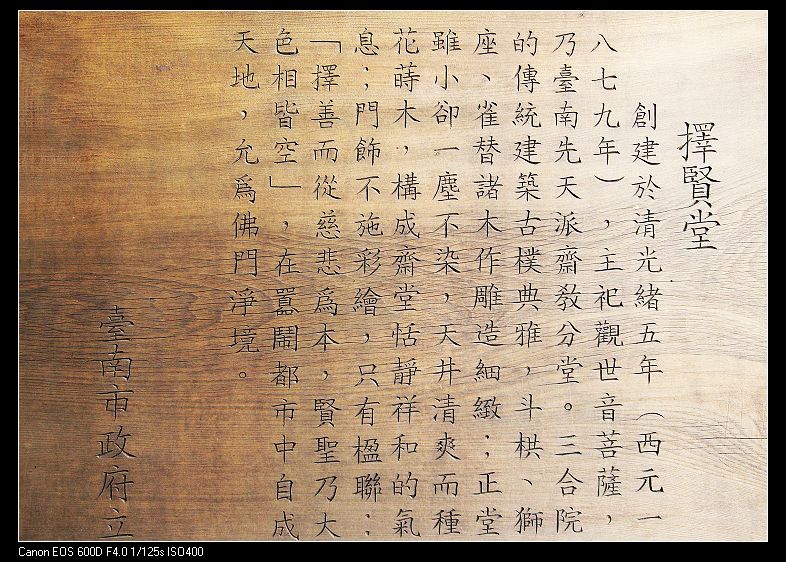 擇賢堂
創建於清光緒五年（西元一
八七九年），主祀觀世音菩薩，
乃臺南先天派齋教分堂。三合院
的傳統建築古樸典雅，斗栱、獅
座、雀替諸木作雕造細緻；正堂
雖小卻一塵不染，天井清爽而種
花蒔木，構成齋堂恬靜祥和的氣
息；門飾不施彩繪，只有楹聯：
「擇善而從慈悲為本，賢聖乃大
色相皆空」，在囂鬧都市中自成
天地，允為佛門淨境。
臺南市政府立
Canon EOS 600D F4.0 1/125s ISO400